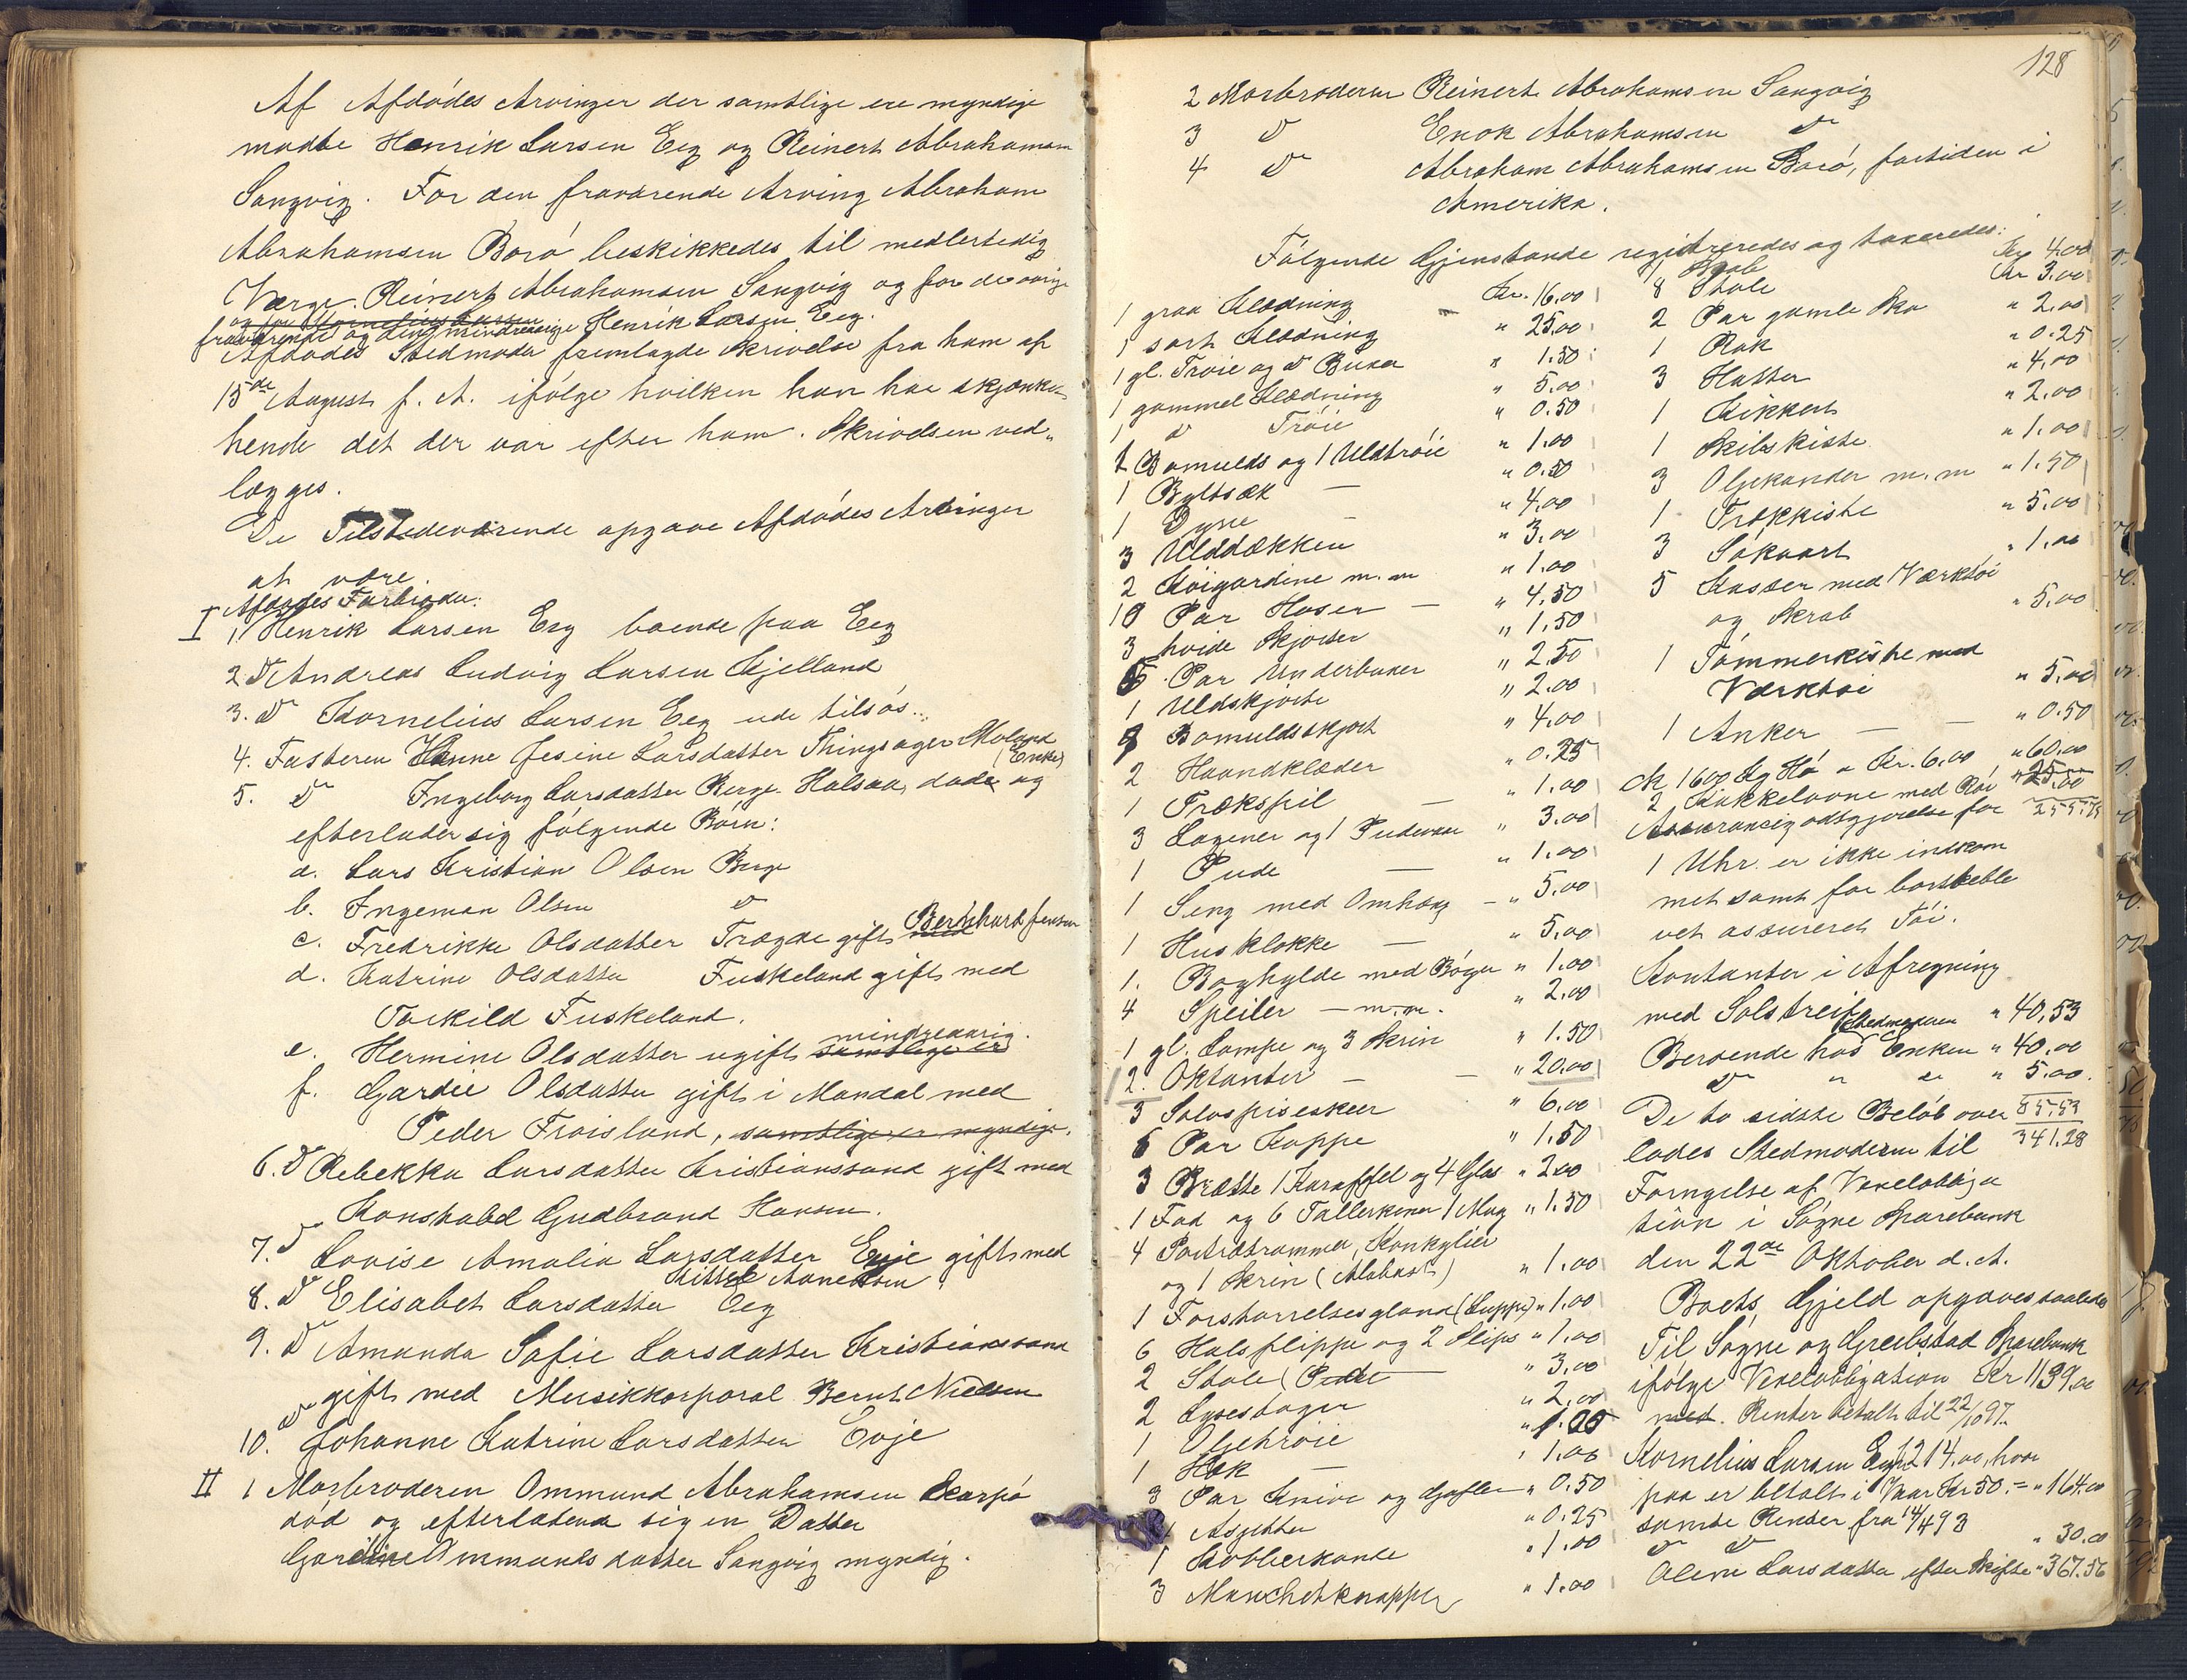 Af Afdødes Arvinger der samtlige ere myndige
mødte Henrik Larsen Eeg og Reinert Abrahamsen
Sangvig. For den fraværende Arving Abraham
Abrahamsen Borø beskikkedes til medlertidig
Værge Reinert Abrahamsen Sangvig og for de øvrige
og for Kornelius Larsen
fraværende og den mindreårige Henrik Larsen Eeg.
Afdødes Stedmoder fremlagde skrivelse fra ham af
15de August f. A. ifølge hvilken han har skjænket
hende det der var efter ham. Skrivelsen ved-
lægges.
De Tilstedeværende opgave Afdødes Arvinger
at være.
Afdødes Farbroder:
I 1 Henrik Larsen Eeg boende paa Eeg
2 D Andreas Ludvig Larsen Kjelland
3. D Kornelius Larsen Eeg ude tilsøs.
4. Fasteren Hanne Jesine Larsdatter Thingsager Moland
(Enke)
5. D Ingeborg Larsdatter Berge. Halsaa, død og
efterlader sig følgende Børn:
a. Lars Kristian Olsen Berge
b. Ingeman Olsen D
c. Fredrikke Olsdatter Trægde gift med Bernhard Jensen
d. Katrine Olsdatter Fuskeland gift med
Torkild Fuskeland.
e. Hermine Olsdatter ugift samtlige er mindreaarig.
f. Gardie Olsdatter gift i Mandal med
Peder Frøisland, samtlige er myndige.
6. D Rebekka Larsdatter Kristianssand gift med
Konstabel Gudbrand Hansen.
7. D Lovise Amalia Larsdatter Eeje gift med
Kittel Aanensen
8. D Elisabet Larsdatter Eeg
9. D Amanda Sofie Larsdatter Kristianssand
gift med Musikkorporal Bernt Nielsen
10. D Johanne Katrine Larsdatter Evje
II 1 Morbroderen Ommund Abrahamsen Skarpø
død og efterladende sig en Datter
Gardine Ommundsdatter Sangvig myndig.
128
2 Morbroderen Reinert Abrahamsen Sangvig
3 D Enok Abrahamsen D
4 D Abraham Abrahamsen Borø, fortiden i
Amerika.
Følgende Gjenstande registreredes og taxeredes:
1 graa Klædning - Kr. 16.00
1 sort Klædning " 25.00
1 gl. Trøie og D Buxer " 1.50
1 gammel Klædning " 5.00
1 D Trøie " 0.50
1 Bomulds og 1 Uldtrøie " 1.00
1 Byltsæk — " 0.50
1 Dyne — " 4.00
3 Ulddækken " 3.00
2 Køigardine m.m " 1.00
10 Par Hoser — " 4.50
3 hvide Skjorter " 1.50
5 Par Underbuxer " 2.50
1 Uldskjorte " 2.00
8 Bomuldsskjort " 4.00
2 Haandklæder " 0.25
1 Trækspil — " 1.00
3 Lagener og 1 Pudevar " 3.00
1 Pude — " 1.00
1 Seng med Omhæng — " 5.00
1 Husklokke — " 5.00
1. Boghylde med Bøger " 1.00
4 Speiler — m.m. " 2.00
1 gl. Lampe og 3 Skrin " 1.50
2. Oktanter — " 20.00
3 Sølvspiseskeer " 6.00
6 Par Koppe " 1.50
3 Brætte 1 Karaffel og 4 Glas " 2.00
1 Fad og 6 Tallerkener 1 Mug " 1.50
4 Portrætrammer, Konkylier
og 1 Skrin (Alabast) " 1.00
1 Forstørrelsesgland (Luppe) " 1.00
6 Halsflippe og 2 Slips " 1.00
2 Stole (Pude — " 3.00
2 Lysestager " 2.00
1 Oljetrøie " 1.00
1 Hæk — " 1.00
3 Par Knive og Gafler " 0.50
Asjetter " 0.25
1 Kobberkande " 1.00
3 Manchetknapper " 1.00
1 Skab Kr 4.00
8 Stole Kr 3.00
2 Par gamle Sko " 2.00
1 Rok " 0.25
3 Hatter " 4.00
1 Kikkert " 2.00
1 Skibskiste " 1.00
3 Oljekander m.m " 1.50
1 Trækkiste " 5.00
3 Søkaart " 1.00
5 Kasser med Værktøi
og Skrab " 5.00
1 Tømmerkiste med
Værktøi " 5.00
1 Anker — — " 0.50
ck 1600 Kg Hø a Kr. 6.00 " 60.00
2 Kakkelovne med Rør " 25.00
Assurancegodtgjørelse for 255.75
1 Uhr er ikke indkom
met samt for bortkeble
vet assureret Tøi.
Kontanter i Afregning
med Solstreif " 40,53
Stedmoderen
Beroende hos Enken " 40.00
D " D " 5.00.
De to sidste Beløb over 85.53
lodes Stedmoderen til 341.28
Fornyelse af Vexelobliga
tion i Søgne Sparebank
den 22de Oktober d. A.
Boets Gjeld opgaves saaledes
Til Søgne og Greibstad Sparebank
ifølge Vexelobligation Kr 1139.00
med. Renter betalt til 22/10 97.
Kornelius Larsen Eeg 214.00, hvor
paa er betalt i Vaar Kr 50. = " 164.00
samt Renter fra 14/4 93
D D " 30.00
Olene Larsdatter efter Skifte " 367.56